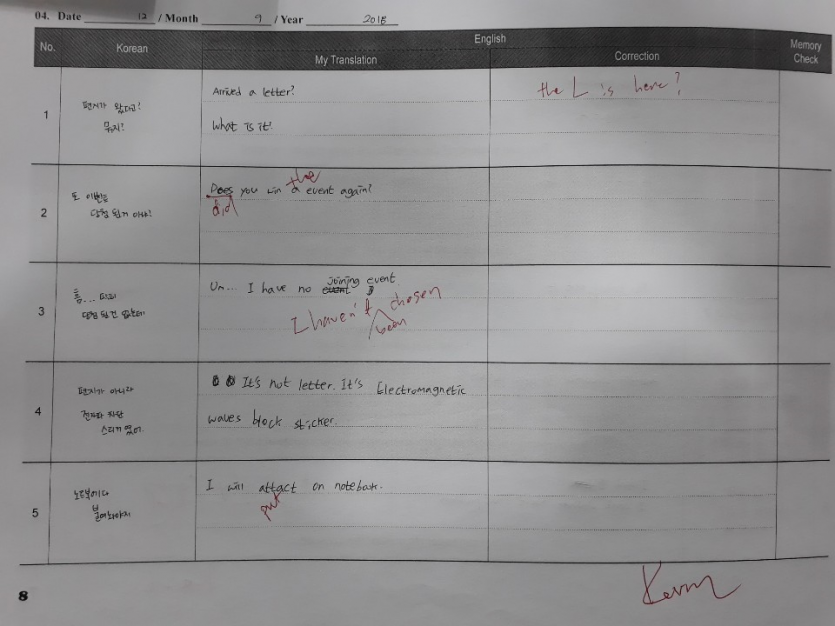 04. Date 12 / Month 9 / Year 2018
English
No. Korean My Translation Correction Memory Check
1
편지가 왔다고!
뭐지?
Arrived a letter?
What is it?
the L is here?
2
또 이벤트
당첨 된거 아냐?
the
Does you win a event again?
did
3
흠...
당첨 된 건 없는데
joining
Um... I have no event event
I haven't chosen
been
4
편지가 아니라
전자파 차단
스티커 였어.
It's not letter. It's Electromagnetic
waves block sticker.
5
노트북에다
붙여놔야지
I will attact on notebook.
put
8
Kevin